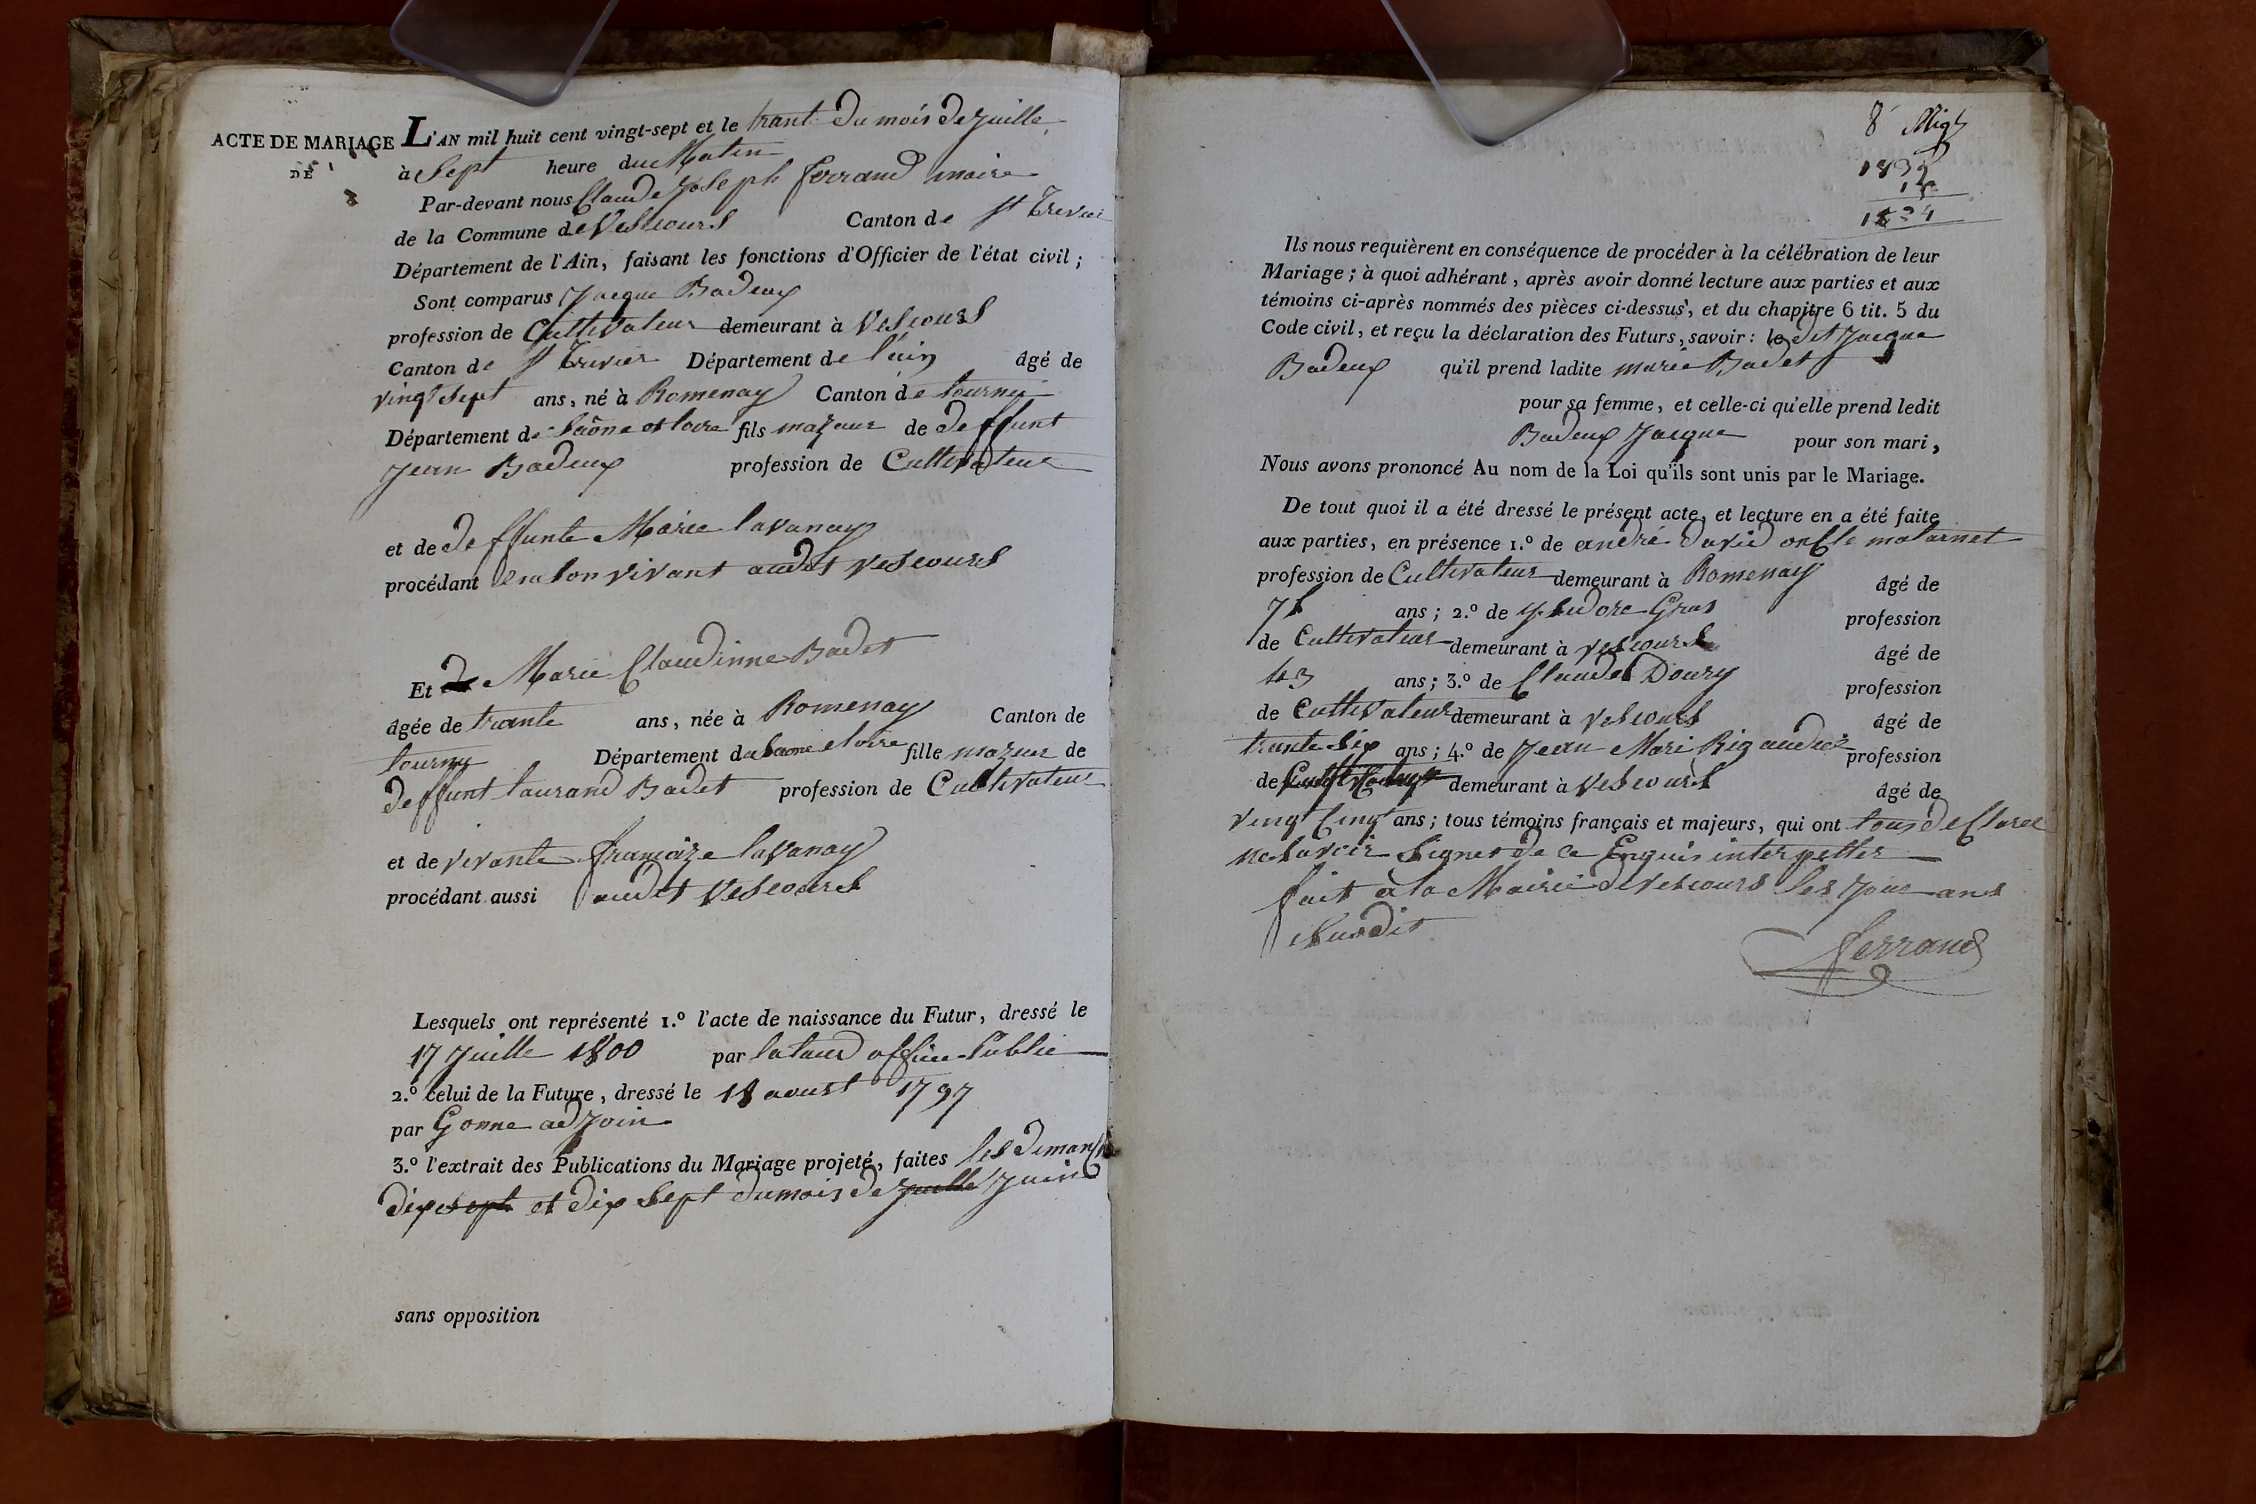 ACTE DE MARIAGE
DE
8
L'AN mil huit cent vingt-sept et le trant du mois de juille
à Sept heure du Matin
Par-devant nous Claude Joseph ferrand maire
de la Commune de Vescours Canton de St Trevier
Département de l'Ain, faisant les fonctions d'Officier de l'état civil ;
Sont comparus Jacque Badeux
profession de Cultivateur demeurant à Vescours
Canton de St Trivier Département de l'ain âgé de
vingt sept ans, né à Romenay Canton de tournu
Département de Saône et loire fils mazeur de deffunt
Jean Badeux profession de Cultivateur
et de deffunte Marie lavanay
procédant vivant audit vescours
Et de Marie Claudinne Badet
âgée de trante ans, née à Romenay Canton de
tournu Département de Saone et loire fille mazeur de
deffunt laurand Badet profession de Cultivateur
et de vivante françoize lavanay
procédant aussi audit Vescours
Lesquels ont représenté 1.º l'acte de naissance du Futur, dressé le
17 Juille 1800 par office Public
2.º celui de la Future, dressé le 18 aoust 1797
par Gonne adjoin
3.º l'extrait des Publications du Mariage projeté, faites les dimanche
dix sept et dix sept du mois de juille juin
sans opposition
8
1834
Ils nous requièrent en conséquence de procéder à la célébration de leur
Mariage ; à quoi adhérant, après avoir donné lecture aux parties et aux
témoins ci-après nommés des pièces ci-dessus, et du chapitre 6 tit. 5 du
Code civil, et reçu la déclaration des Futurs, savoir : le dit Jacque
Badeux qu'il prend ladite marie Badet
pour sa femme, et celle-ci qu'elle prend ledit
Badeux Jacque pour son mari,
Nous avons prononcé Au nom de la Loi qu'ils sont unis par le Mariage.
De tout quoi il a été dressé le présent acte, et lecture en a été faite
aux parties, en présence 1.º de andré david oncle matarnet
profession de Cultivateur demeurant à Romenay âgé de
ans ; 2.º de ysidore Gras profession
de Cultivateur demeurant à vescours âgé de
43 ans ; 3.º de Claude Doury profession
de Cultivateur demeurant à vescours âgé de
trante six ans ; 4.º de Jean Mari Rigaudier profession
de Cultivateur demeurant à Vescours âgé de
vingt Cinq ans ; tous témoins français et majeurs, qui ont tous de Claree
ne savoir Signer de ce Enquis interpetter
fait à la Mairie de vescours les jour ans
susdit
ferrand